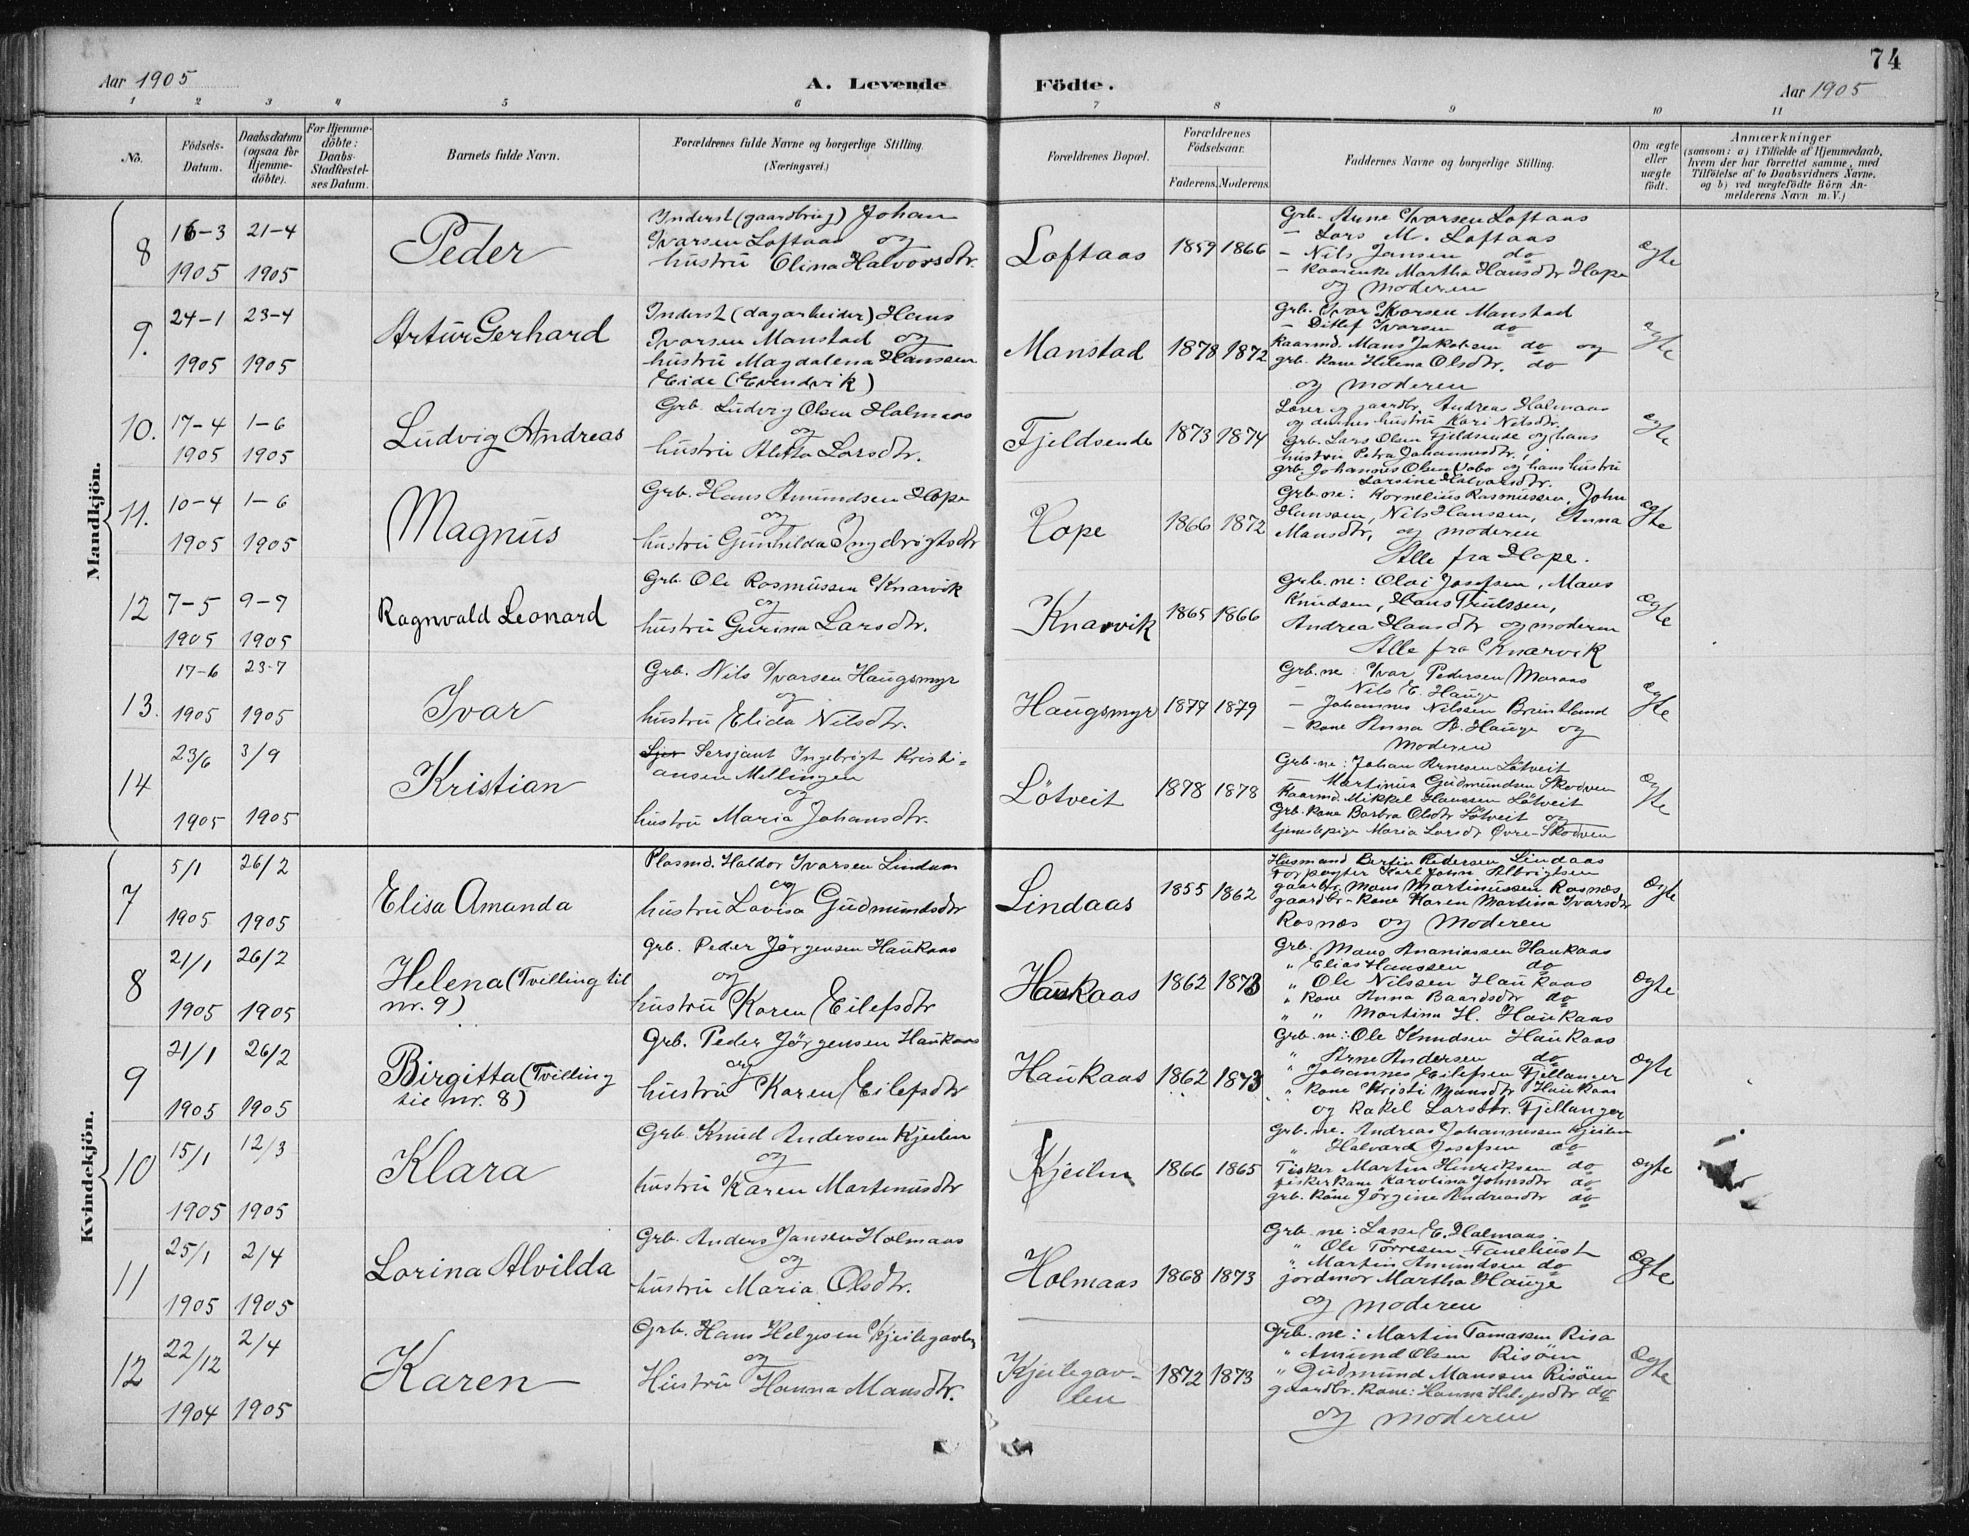 74
Aar 1905 A. Levende Födte. Aar 1905
1 2 3 4 5 6 7 8 9 10 11
No. Födsels-Datum. Daabsdatum (ogsaa for Hjemme-döbte). For Hjemme-döbte: Daabs-Stadfestel-ses Datum. Barnets fulde Navn. Forældrenes fulde Navne og borgerlige Stilling. (Næringsvei.) Forældrenes Bopæl. Forældrenes Födselsaar. Faderens. Moderens. Faddernes Navne og borgerlige Stilling. Om ægte eller uægte födt. Anmærkninger (saasom: a) i Tilfælde af Hjemmedaab, hvem der har forrettet samme, med Tilföielse af to Daabsvidners Navne. og b) ved uægtefödte Börn An-melderens Navn m. V.)
Mandkjön.
8 16-3 1905 21-4 1905 Peder
Inderst (gaardbrug) Johan
Ivarsen Loftaas og
hustru Olina Halvorsdtr.
Loftaas 1859 1866
Grb. Arne Ivarsen Loftaas
- Lars M. Loftaas
- Nils Jansen do
- kaarenke Martha Hansdtr Hope
og moderen
ægte
9. 24-1 1905 23-4 1905 Artur Gerhard
Inderst (dagarbeider) Hans
Ivarsen Manstad og
hustru Magdalena Hanssen
Eide (Evendvik)
Manstad 1878 1872
Grb. Ivar Korsen Manstad
- Ditlef Ivarsen do
kaarmd. Mans Jakobsen do og
grb. kone Helena Olsdtr. do
og moderen
ægte
10. 17-4 1905 1-6 1905 Ludvig Andreas
Grb. Ludvig Olsen Halmaas
og
hustru Aletta Larsdtr.
Fjeldsende 1873 1874
Lærer og gaardbr. Andreas Halmaas
og dennes hustru Kari Nilsdtr.
Grb. Lars Olsen Fjeldsende og hans
hustru Petra Johannesdtr.,
grb. Johannes Olsen Vabo og hans hustru
Larsine Halvorsdtr.
ægte
11. 10-4 1905 1-6 1905 Magnus
Grb. Hans Amundsen Hope
og
hustru Gunhilda Ingebrigtsdtr
Hope 1866 1872
Grb.ne: Kornelius Rasmussen, John
Hanssen, Nils Hanssen, Anna
Mansdtr, og moderen
Alle fra Hope.
ægte
12 7-5 1905 9-9 1905 Ragnvald Leonard
Grb. Ole Rasmussen Knarvik
og
hustru Gurina Larsdtr.
Knarvik 1865 1866
Grb.ne: Olai Josefsen, Mans
Knudsen, Hans Trulssen,
Andrea Hansdtr og moderen
Alle fra Knarvik
ægte
13. 17-6 1905 23-7 1905 Ivar
Grb. Nils Ivarsen Haugsmyr
og
hustru Elida Nilsdtr.
Haugsmyr 1877 1879
Grb.ne: Ivar Pedersen Maraas
- Nils E. Hauge
- Johannes Nilssen Bruntland
- kone Anna A. Hauge og
moderen
ægte
14 23/6 1905 3/9 1905 Kristian
Sersjant Ingebrigt Kristi=
ansen Mellingen
og
hustru Maria Johansdtr.
Lötveit 1878 1878
Grb.ne: Johan Arnesen Lötveit
- Martinus Gudmundsen Skodven
Kaarmd. Mikkel Hanssen Lötveit
Grb. kone Barbra Olsdtr Lötveit og
tjenestepige Maria Larsdtr Øvre-Skodven
ægte
Kvindekjön.
7 5/1 1905 26/2 1905 Elisa Amanda
Plasmd. Haldor Ivarsen Lindaas
og
hustru Lovisa Gudmundsdtr
Lindaas 1855 1862
Husmand Bertin Pedersen Lindaas
Forpagter Karl John Albrigtsen
gaardbr. Mans Martinussen Rosnæs,
gaardbr-kone Karen Martina Ivarsdtr
Rosnæs og Moderen
ægte
8 21/1 1905 26/2 1905 Helena (Tvilling til
nr. 9)
Grb. Peder Jørgensen Haukaas
og
hustru Karen Eilefsdtr
Haukaas 1862 1873
Grb. Mans Ananiassen Haukaas
" Elias Hanssen do
" Ole Nilssen Haukaas
" kone Anna Baardsdtr do
" " Martina H. Haukaas
ægte
9 21/1 1905 26/2 1905 Birgitta (Tvilling
til nr. 8)
Grb. Peder Jørgensen Haukaas
og
hustru Karen Eilefsdtr
Haukaas 1862 1873
Grb. ne: Ole Knudsen Haukaas
" Arne Andersen do
" Johannes Eilefsen Fjellanger
" kone Kristi Mansdtr Haukaas
og Rakel Larsdtr. Fjellanger
ægte
10 15/1 1905 12/3 1905 Klara
Grb. Knud Andersen Kjeilen
og
hustru Karen Martinusdtr
Kjeilen 1866 1865
Grb. ne. Andreas Johannessen Kjeilen
" Halvard Josefsen do
Fisker Martin Henriksen do
fiskerkone Karolina Johnsdtr do
grb. kone Jørgine Andreasdtr do
ægte
11 25/1 1905 2/4 1905 Lorina Alvilda
Grb. Anders Jansen Holmaas
og
hustru Maria Olsdtr.
Holmaas 1868 1873
Grb ne: Lasse E. Holmaas
" Ole Tørresen Fanebust
" Martin Amundsen do
jordmor Martha Hauge
og moderen
ægte
12 22/12 1904 2/4 1905 Karen
Grb. Hans Helgesen Kjeilegavlen
og
Hustru Hanna Mansdtr.
Kjeilegav-
len 1872 1873
Grb. ne: Martin Tomassen Risa
" Amund Olsen Risöen
" Gudmund Manssen Risöen
gaardbr. kone: Hanna Helgesdtr do
og moderen
ægte